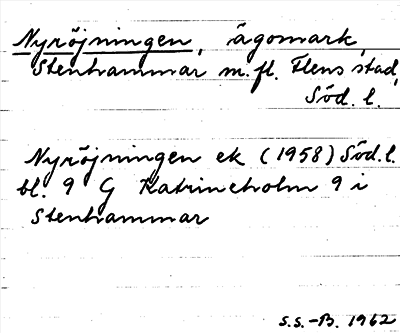 Nyröjningen, ägomark,
Stenhammar m.fl. Flens stad,
Söd. l.
Nyröjningen ek (1958) Söd. l.
bl. 9 G Katrineholm 9 i
Stenhammar
S.S.-B. 1962